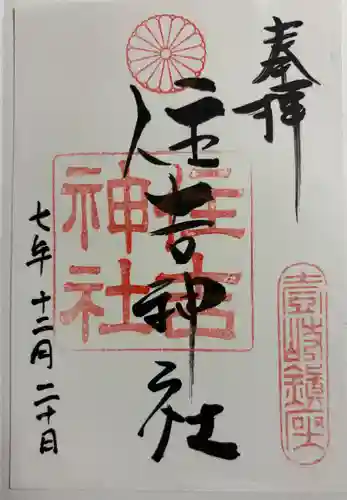 奉拝
壹岐鎮座
住吉神社
住吉神社
七年十二月二十日